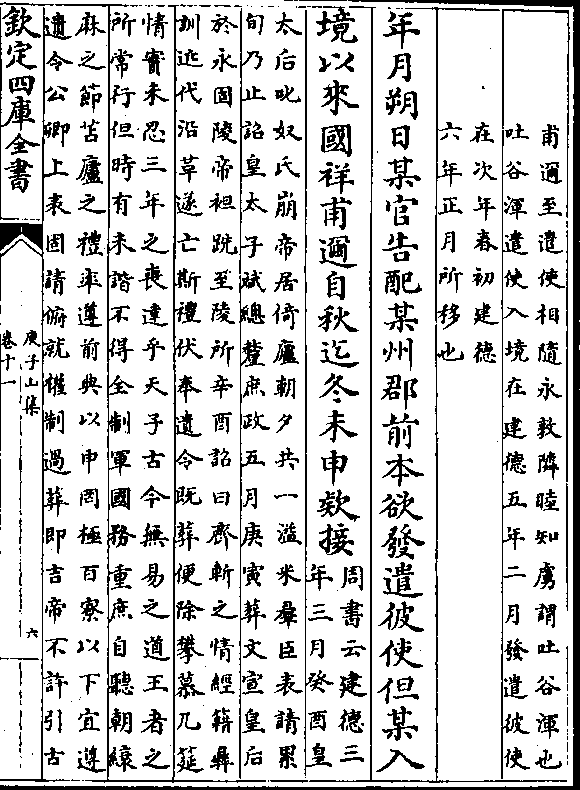 甫邇至遣使相隨永敦隣睦知虜謂吐谷渾也
吐谷渾遣使入境在建德五年二月發遣彼使
在次年春初建德
六年正月所移也
年月朔日某官告配某州郡前本欲發遣彼使但某入
境以來國祥甫邇自秋迄冬未申欵接
周書云建德三
年三月癸酉皇
太后叱奴氏崩帝居倚廬朝夕共一溢米羣臣表請累
旬乃止詔皇太子贇總釐庶政五月庚寅葬文宣皇后
於永固陵帝袒跣至陵所辛酉詔曰齊斬之情經籍彝
訓近代沿革遂亡斯禮伏奉遺令既葬便除攀慕几筵
情實未忍三年之喪達乎天子古今無易之道王者之
所常行但時有未諧不得全制軍國務重庶自聽朝縗
麻之節苫廬之禮率遵前典以申罔極百寮以下宜遵
遺令公卿上表固請俯就權制過葬即吉帝不許引古
欽定四庫全書
庾子山集
卷十一
六